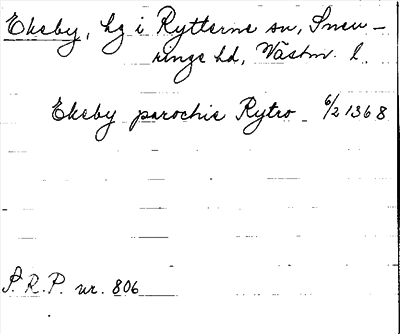 Ekeby, hg i Rytterne sn, Snev-
ringe hd, Västm. l.
Ekeby parochie Rytro 6/2 1368
S.R.P. nr. 806